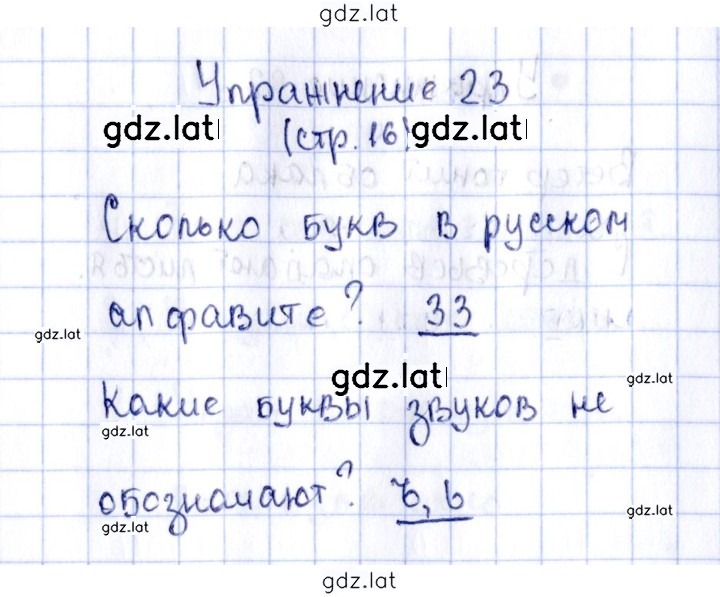 gdz.lat
Упражнение 23
gdz.lat (стр. 16) gdz.lat
Сколько букв в русском
алфавите? 33
gdz.lat
gdz.lat
gdz.lat
Какие буквы звуков не
gdz.lat
обозначают? ъ, ь
gdz.lat
gdz.lat
gdz.lat